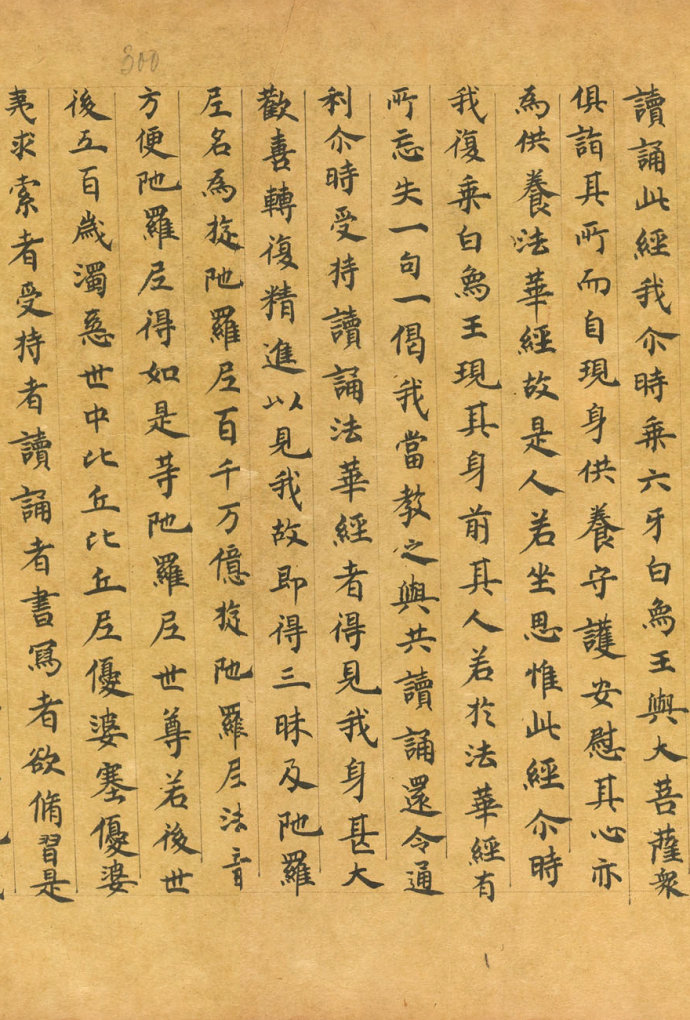 300
讀誦此經我尒時乘六牙白象王與大菩薩衆
俱詣其所而自現身供養守護安慰其心亦
為供養法華經故是人若坐思惟此經尒時
我復乘白象王現其身前其人若於法華經有
所忘失一句一偈我當教之與共讀誦還令通
利尒時受持讀誦法華經者得見我身甚大
歡喜轉復精進以見我故即得三昧及陁羅
尼名為旋陁羅尼百千万億旋陁羅尼法音
方便陁羅尼得如是等陁羅尼世尊若後世
後五百歲濁惡世中比丘比丘尼優婆塞優婆
夷求索者受持者讀誦者書寫者欲脩習是